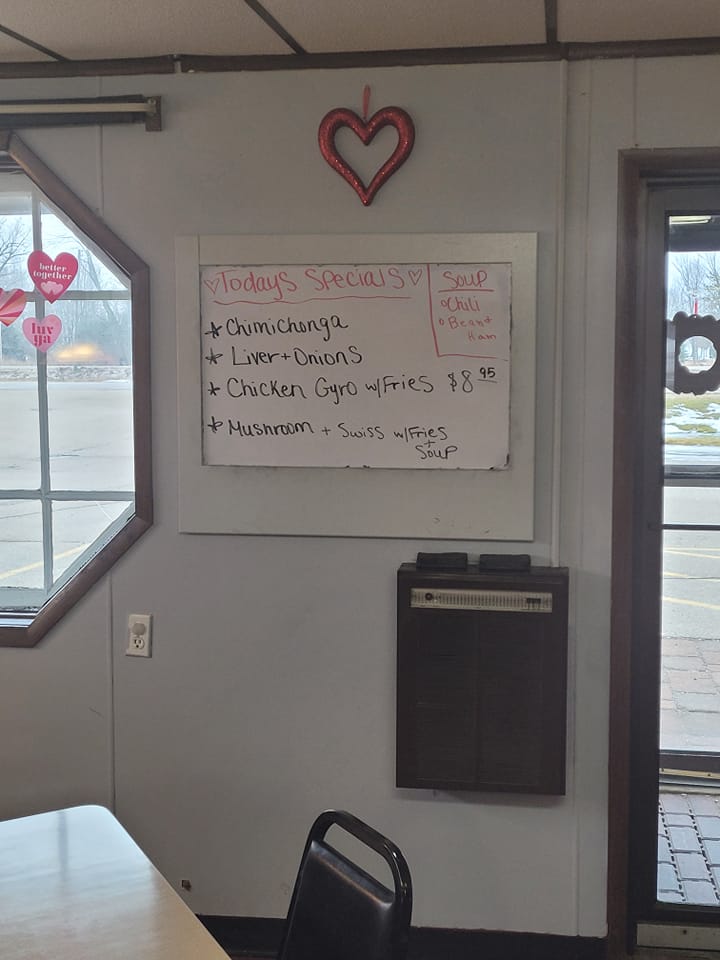 better
together
luv
ya
♡Todays Specials♡
* Chimichonga
* Liver + Onions
* Chicken Gyro w/Fries $8 95
* Mushroom + Swiss w/Fries
+
Soup
Soup
○ Chili
○ Bean +
Ham